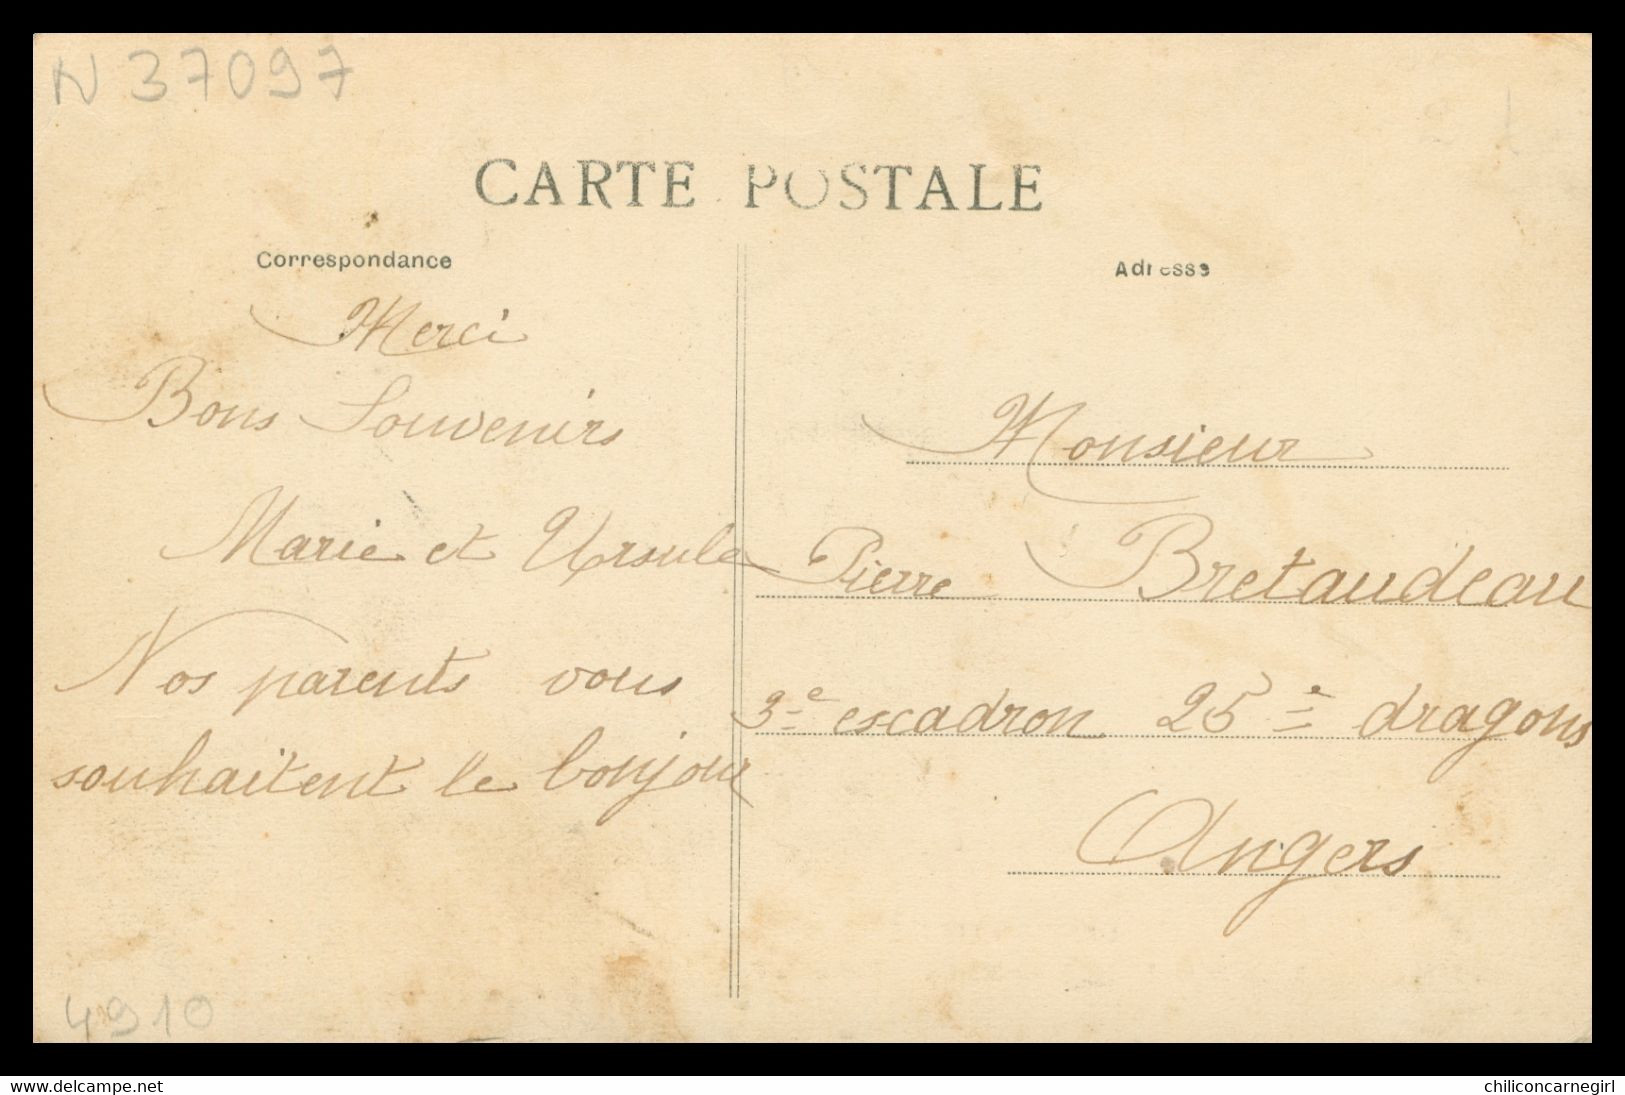 N 37097
CARTE POSTALE
Correspondance
Merci
Bons Souvenirs
Marie et Ursule
Nos parents vous
souhaitent le bonjour
4910
Adresse
Monsieur
Pierre Bretaudeau
3e escadron 25e dragons
Angers
www.delcampe.net
chiliconcarnegirl